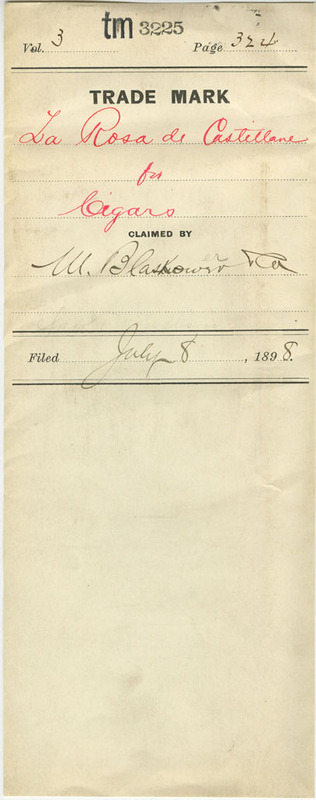 tm 3225
Vol. 3 Page 324
TRADE MARK
La Rosa de Castellane
for
Cigars
CLAIMED BY
M. Blaskower & Co
Filed July 8, 1898.